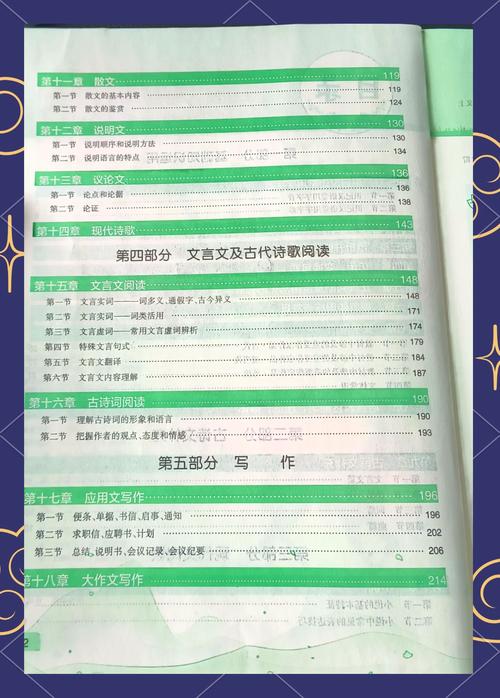 第十一章 散文 119
第一节 散文的基本内容 119
第二节 散文的鉴赏 124
第十二章 说明文 130
第一节 说明顺序和说明方法 130
第二节 说明语言的特点 134
第十三章 议论文 136
第一节 论点和论据 136
第二节 论证 138
第十四章 现代诗歌 143
第四部分 文言文及古代诗歌阅读
第十五章 文言文阅读 148
第一节 文言实词——一词多义,通假字,古今异义 148
第二节 文言实词——词类活用 171
第三节 文言虚词——常用文言虚词辨析 174
第四节 特殊文言句式 179
第五节 文言文翻译 184
第六节 文言文内容理解 187
第十六章 古诗词阅读 190
第一节 理解古诗词的形象和语言 190
第二节 把握作者的观点、态度和情感 193
第五部分 写 作
第十七章 应用文写作 196
第一节 便条、单据、书信、启事、通知 196
第二节 求职信、应聘书、计划 202
第三节 总结、说明书、会议记录、会议纪要 206
第十八章 大作文写作 214
2